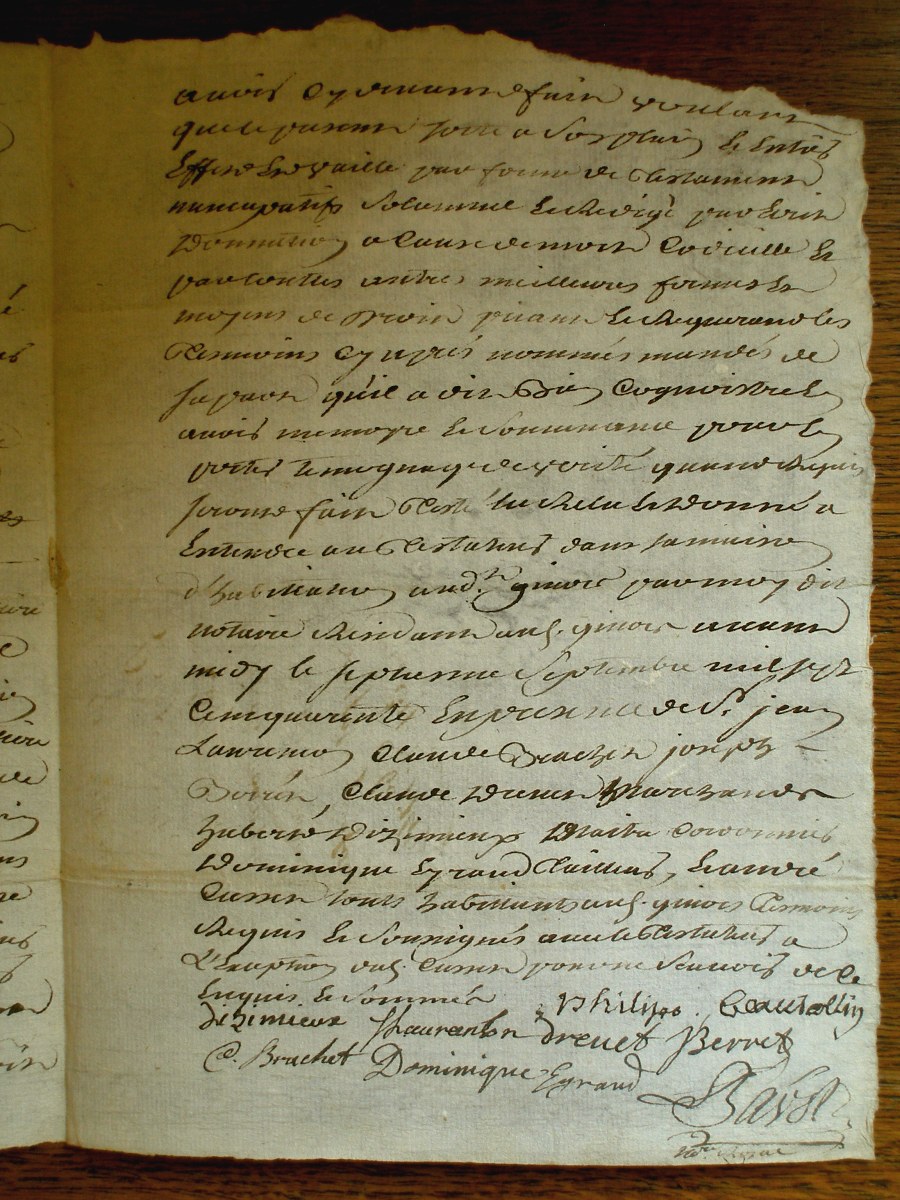 avoir cy devant fait voulant
que le present sorte a son plain et entier
Effet et vaille par forme de Testament
nuncupatif solamnel et redigé par Ecrit
Donnation a cause de mort Codicille et
par toutes autres meilleures formes et
moyens de Droit priant et Requerant les
Tesmoins cy aprés nommés mandés de
sa part qu'il a dit Bien Cognoistre et
avoir memoyre et souvenance pour en
porter temognage de verité quand Requis
seront fait Testé lu Relu et Donné a
Entendre au Testateur dans sa maison
d'habitation aud.t givors par moy dit
notaire Residant aud. givors avant
midy le septieme Septembre mil sept
Cent quarente En presence de Sr. jean
Laurenson Claude Brachet joseph
Claude Drevet Marchands
hubert Dizimieux Maitre Cordonnier
Dominique Eyraud Tailleur, Et andré
Curson touts habitants aud. givors Tesmoins
Requis et soussignés avec le Testateur a
L'Exception dud. Curson pour ne sçavoir de ce
Enquis et sommés
Philipe. Beautollin
dezimieux JLaurenson Drevet Berret
C. Brachet Dominique Egraud